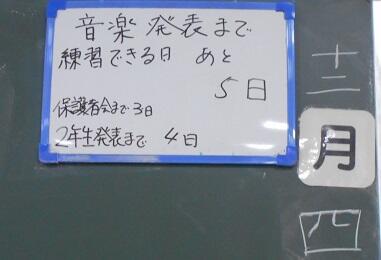 音楽発表まで
練習できる日 あと
5日
保護者会まで3日
2年生発表まで 4日
十二
月
四